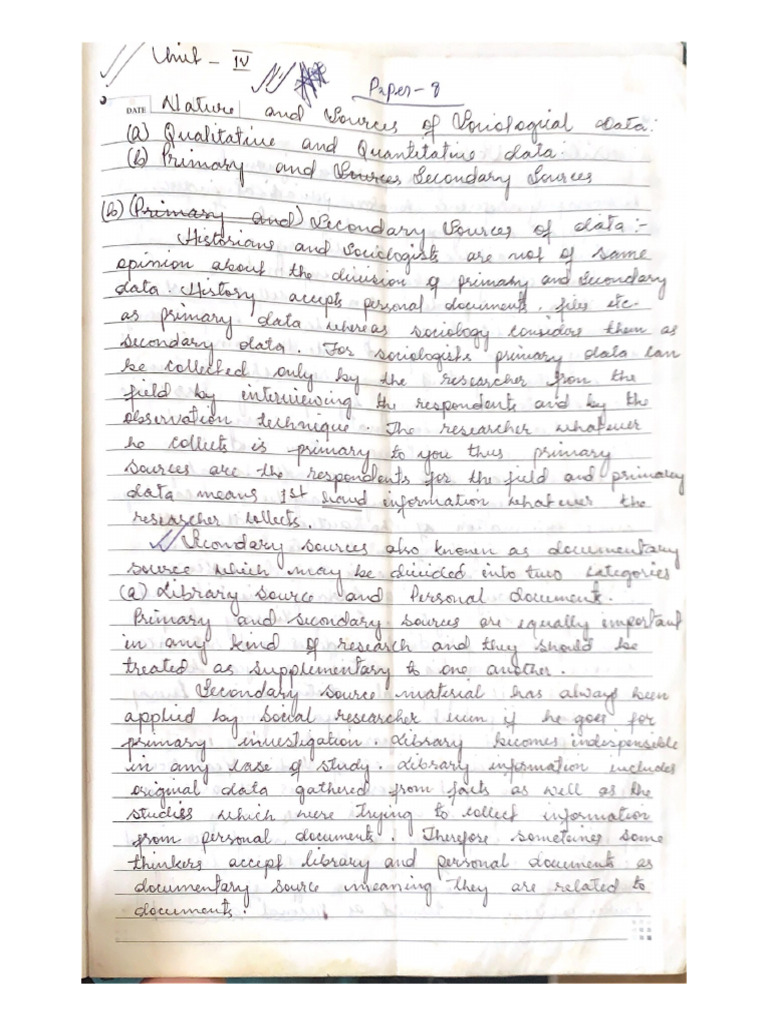 Unit - IV
Paper - 8
DATE Nature and Sources of Sociological data:
(a) Qualitative and Quantitative data.
(b) Primary and Sources Secondary Sources
(b) (Primary and) Secondary Sources of data :-
Historians and Sociologists are not of same
opinion about the division of primary and Secondary
data. History accepts personal documents, files etc.
as primary data whereas sociology considers them as
secondary data. For sociologists primary data can
be collected only by the researcher from the
field by interviewing the respondents and by the
observation technique. The researcher whatever
he collects is primary to you thus primary
sources are the respondents for the field and primary
data means 1st hand information whatever the
researcher collects.
Secondary sources also known as documentary
source which may be divided into two categories
(a) Library Source and Personal documents.
Primary and secondary sources are equally important
in any kind of research and they should be
treated as supplementary to one another.
Secondary source material has always been
applied by social researcher even if he goes for
primary investigation. Library becomes indispensible
in any case of study. Library information includes
original data gathered from facts as well as the
studies which were trying to collect information
from personal documents. Therefore sometimes some
thinkers accept library and personal documents as
documentary source meaning they are related to
documents.